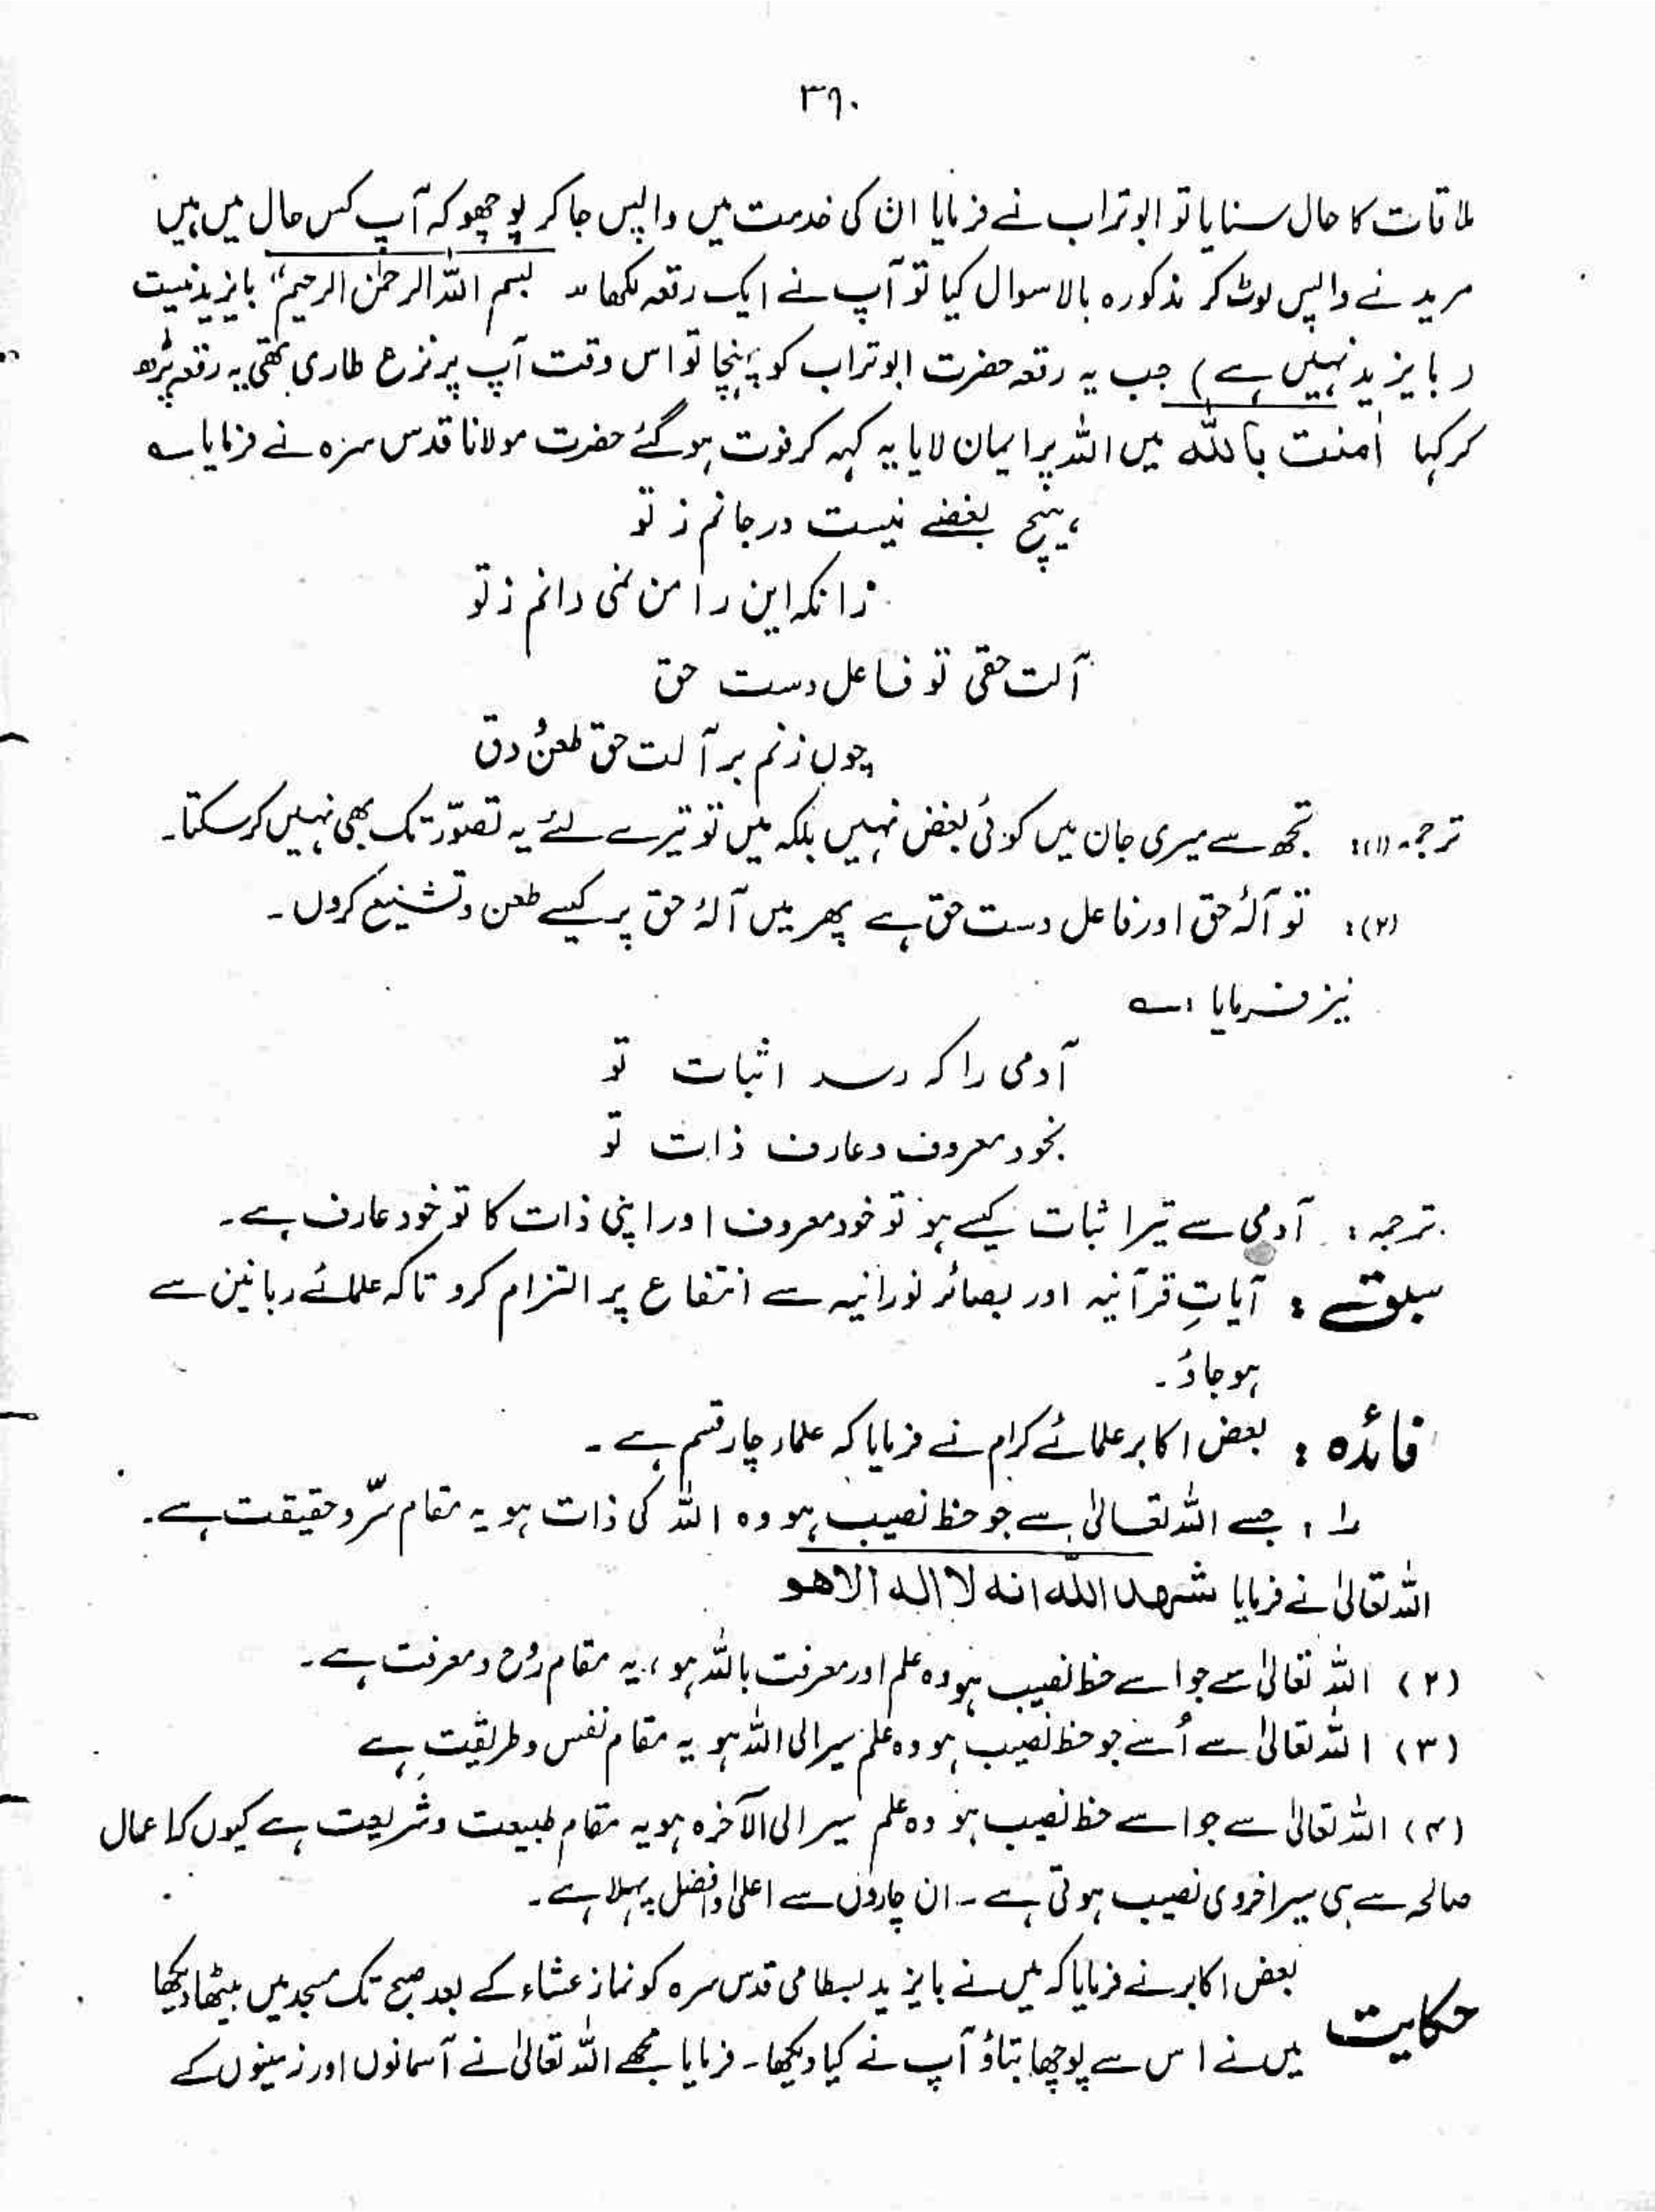 ۳۶۰
ملاقات کا حال سنایا تو ابوتراب نے فرمایا ان کی خدمت میں واپس جا کر پوچھو کہ آپ کس حال میں ہیں
مرید نے واپس لوٹ کر مذکورہ بالا سوال کیا تو آپ نے ایک رقعہ لکھا ” بسم اللہ الرحمٰن الرحیم“ بایزید نیست
(بایزید نہیں ہے) جب یہ رقعہ حضرت ابوتراب کو پہنچا تو اس وقت آپ پر نزع طاری تھی یہ رقعہ پڑھ
کر کہا اٰمنت باللہ میں اللہ پر ایمان لایا یہ کہہ کر فوت ہو گئے حضرت مولانا قدس سرہ نے فرمایا ؎
ہیچ بغضے نیست در جانم ز تو
زانکہ این را من نمی دانم ز تو
آلت حقی تو فاعل دست حق
چوں زنم بر آلت حق طعن و دق
ترجمہ (۱): تجھ سے میری جان میں کوئی بغض نہیں بلکہ میں تو تیرے لئے یہ تصوّر تک بھی نہیں کر سکتا۔
(۲): تو آلۂ حق اور فاعل دست حق ہے پھر میں آلۂ حق پر کیسے طعن و تشنیع کروں۔
نیز فرمایا ؎
آدمی را کہ رسد اثبات تو
بخود معروف و عارف ذات تو
ترجمہ: آدمی سے تیرا ثبات کیسے ہو تو خود معروف اور اپنی ذات کا تو خود عارف ہے۔
سبق: آیاتِ قرآنیہ اور بصائر نورانیہ سے انتفاع پر التزام کرو تاکہ علمائے ربانین سے
ہو جاؤ۔
فائدہ: بعض اکابر علمائے کرام نے فرمایا کہ علماء چار قسم ہے۔
۱: جسے اللہ تعالیٰ سے جو حظ نصیب ہو وہ اللہ کی ذات ہو یہ مقام سرّ و حقیقت ہے۔
اللہ تعالیٰ نے فرمایا شہد اللہ انہ لا الہ الا ھو
(۲) اللہ تعالیٰ سے جو اسے حظ نصیب ہو وہ علم اور معرفت باللہ ہو، یہ مقام رُوح و معرفت ہے۔
(۳) اللہ تعالیٰ سے اُسے جو حظ نصیب ہو وہ علم سیر الی اللہ ہو یہ مقام نفس و طریقت ہے
(۴) اللہ تعالیٰ سے جو اسے حظ نصیب ہو وہ علم سیر الی الآخرہ ہو یہ مقام طبیعت و شریعت ہے کیوں کہ اعمال
صالحہ سے ہی سیر اخروی نصیب ہوتی ہے۔ ان چاروں سے اعلیٰ و افضل پہلا ہے۔
حکایت بعض اکابر نے فرمایا کہ میں نے بایزید بسطامی قدس سرہ کو نماز عشاء کے بعد صبح تک مسجد میں بیٹھا دیکھا
میں نے اس سے پوچھا بتاؤ آپ نے کیا دیکھا۔ فرمایا مجھے اللہ تعالیٰ نے آسمانوں اور زمینوں کے